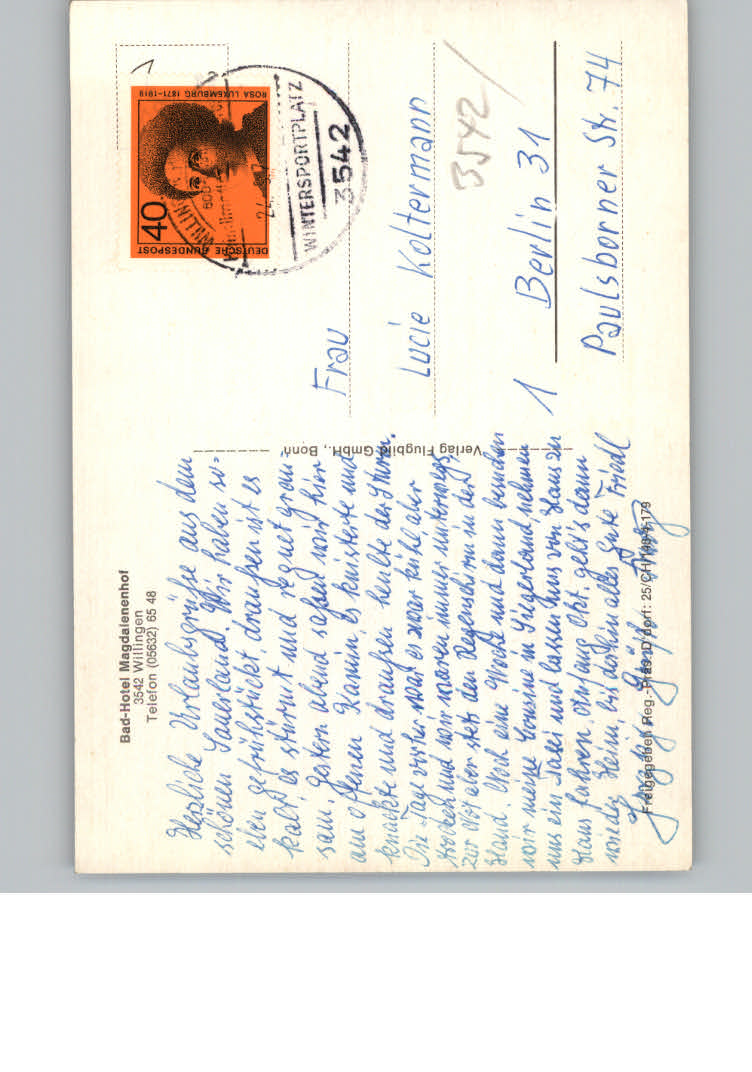 Bad-Hotel Magdalenenhof
3542 Willingen
Telefon (05632) 65 48
Herzliche Urlaubsgrüße aus dem
schönen Sauerland. Wir haben so-
eben gefrühstückt, draußen ist es
kalt, es stürmt und regnet grau-
sam. Gestern abend saßen wir hier
am offenen Kamin, es knisterte und
knackte und draußen heulte der Sturm.
Die Tage vorher war es zwar kühl, aber
trocken und wir waren immer unterwegs,
zur Vorsicht aber stets den Regenschirm in der
Hand. Noch eine Woche und dann
wir meine Cousine in Siegerland, nehmen
uns ein Taxi und lassen uns von Haus zu
Haus fahren. Anfang Okt. geht's dann
wieder heim, bis dahin alles Gute Friedl
Herzliche Grüße
Verlag Flugbild GmbH., Bonn
Freigegeben Reg.-Präs. D'dorf: 25/CH
DEUTSCHE BUNDESPOST
40
ROSA LUXEMBURG 1871-1919
WILLIN
WINTERSPORTPLATZ
3542
Frau
Lucie Koltermann
3542/
1 Berlin 31
Paulsborner Str. 74